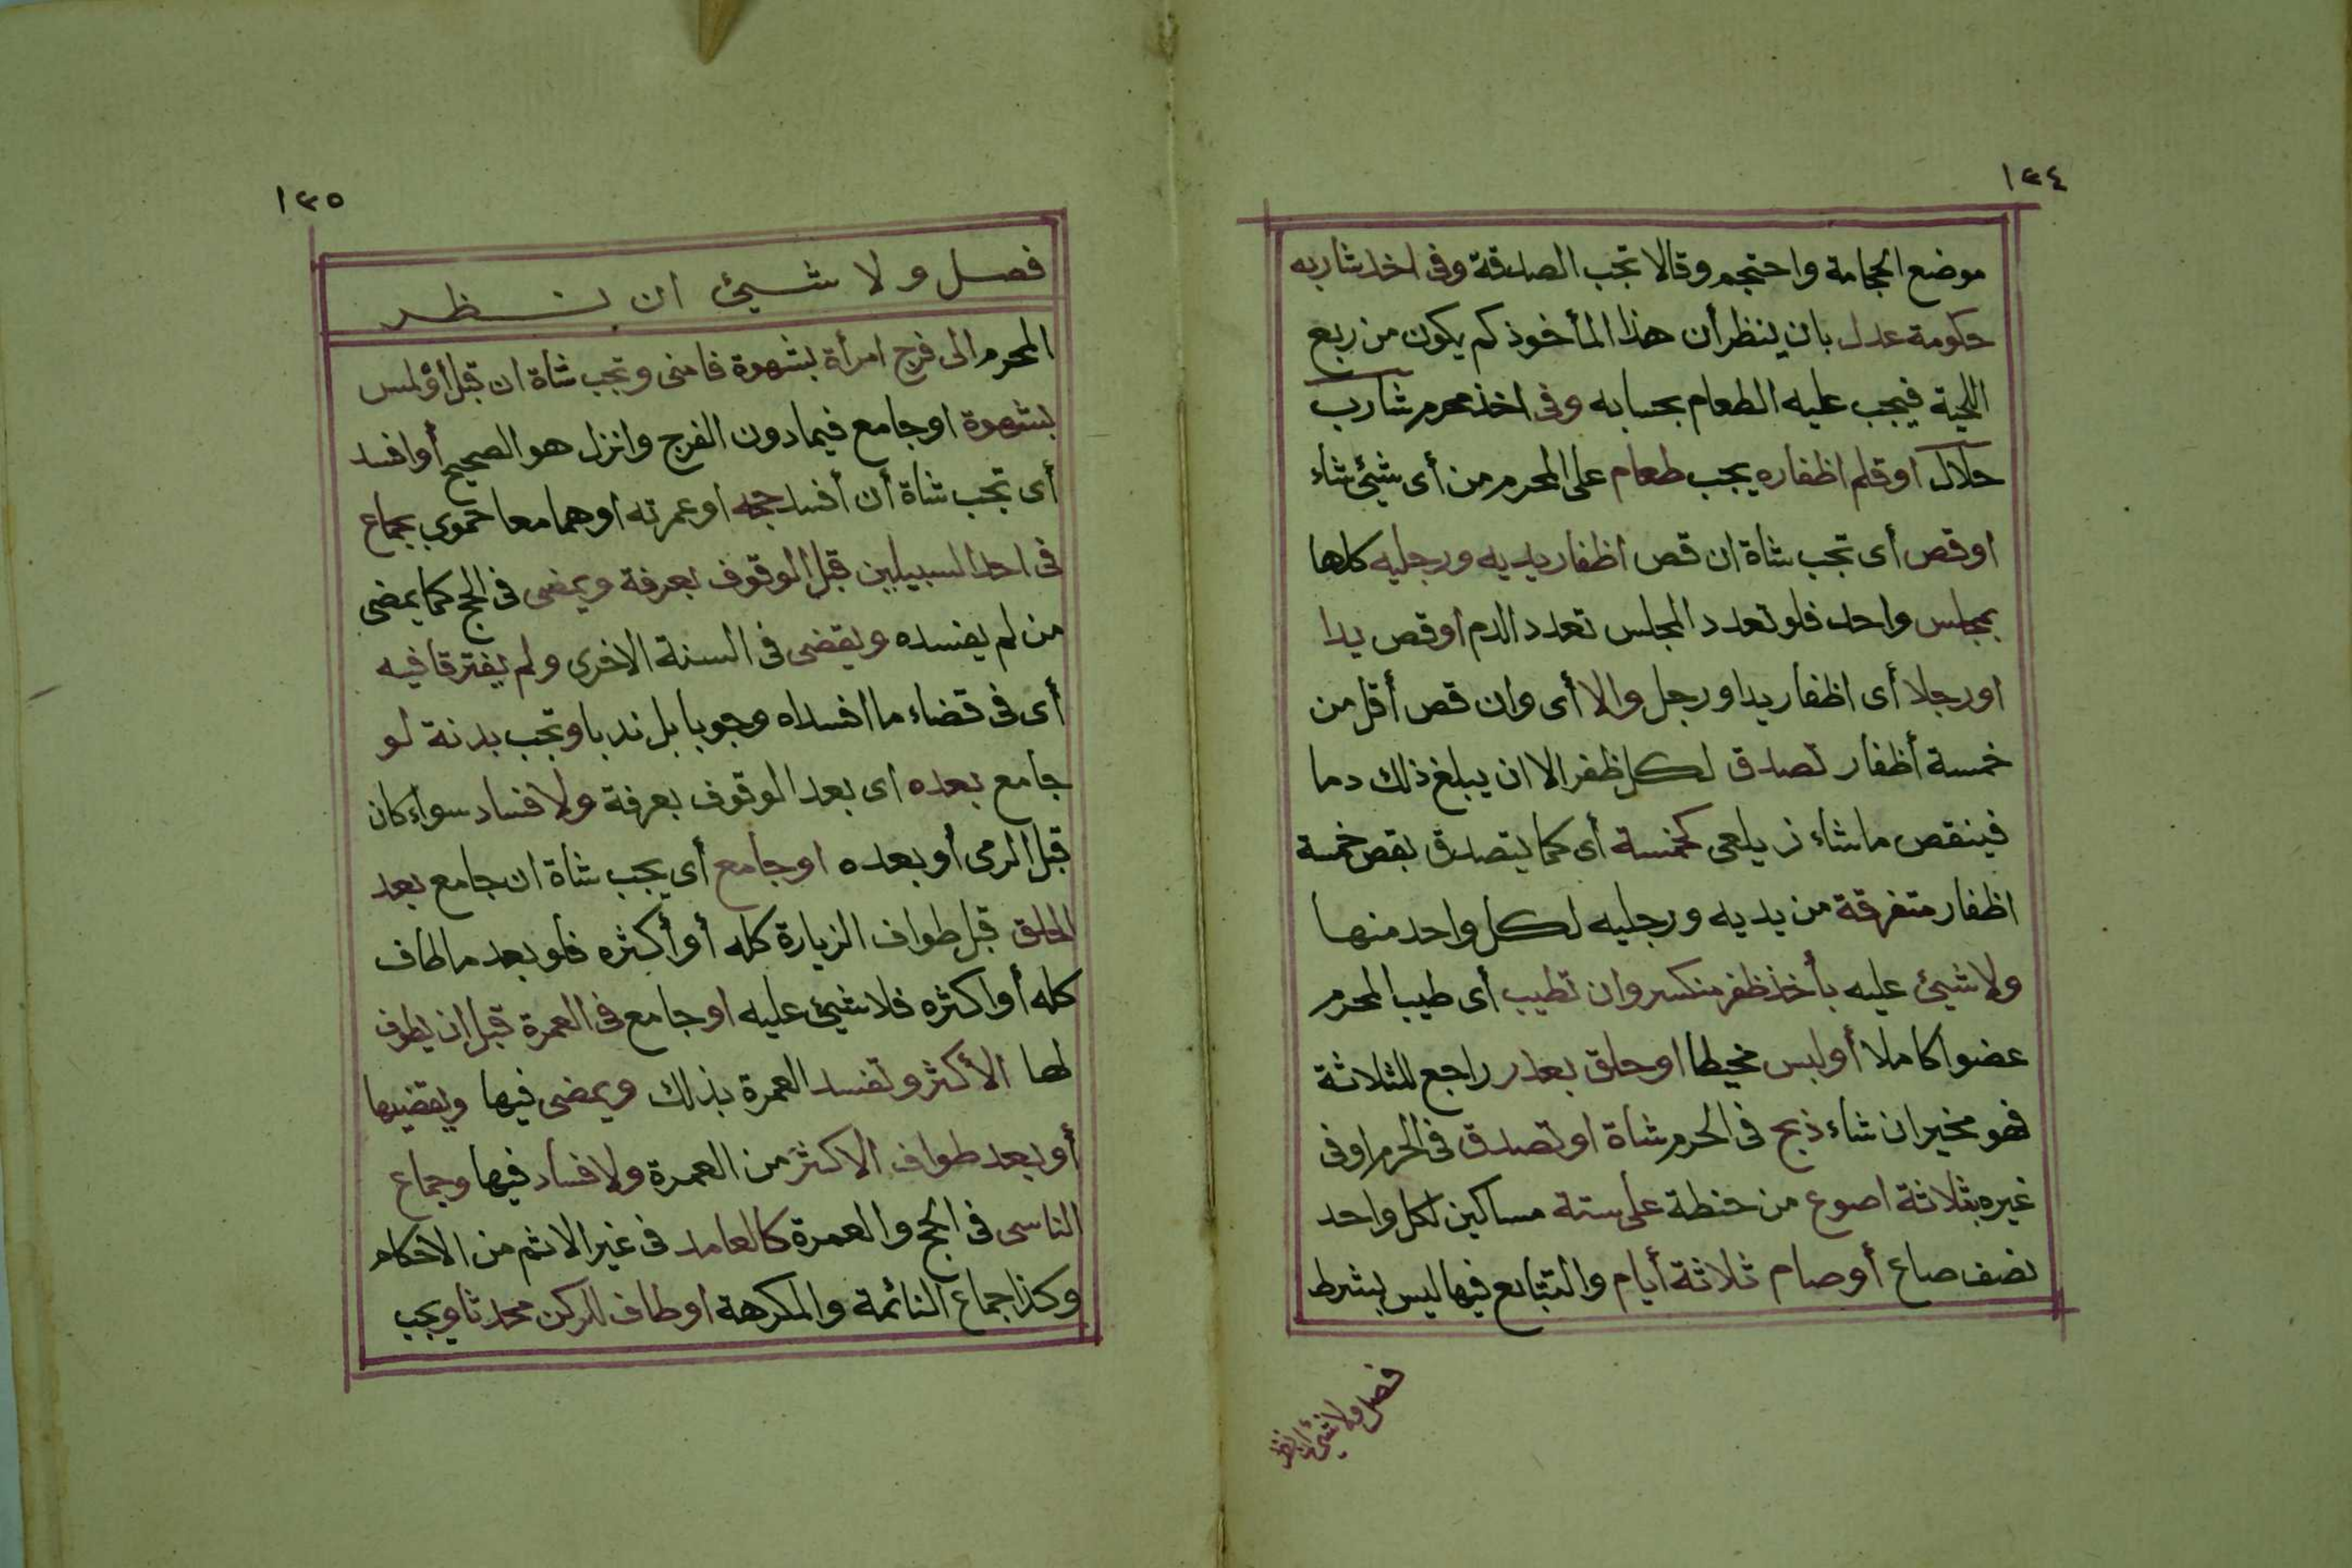 ١٣٤
موضع الحجامة واحتجم وقالا تجب الصدقة وفى اخذ شاربه
حكومة عدل بان ينظر أن هذا المأخوذ كم يكون من ربع
اللحية فيجب عليه الطعام بحسابه وفى اخذ محرم شارب
حلال او قلم اظفاره يجب طعام على المحرم من أى شيئ شاء
او قص أى تجب شاة ان قص اظفار يديه ورجليه كلها
بمجلس واحد فلو تعدد المجلس تعدد الدم او قص يدا
او رجلا أى اظفار يد او رجل والا أى وان قص أقل من
خمسة أظفار تصدق لكل ظفر الا ان يبلغ ذلك دما
فينقص ما شاء زيلعى كخمسة أى كما يتصدق بقص خمسة
اظفار متفرقة من يديه ورجليه لكل واحد منها
ولا شيئ عليه بأخذ ظفر منكسر وان تطيب أى طيب المحرم
عضوا كاملا أو لبس مخيطا او حلق بعذر راجع للثلاثة
فهو مخير ان شاء ذبح فى الحرم شاة او تصدق فى الحرم او فى
غيره بثلاثة اصوع من حنطة على ستة مساكين لكل واحد
نصف صاع أو صام ثلاثة أيام والتتابع فيها ليس بشرط
فصل ولا شيئ ان نظر
١٣٥
فصل ولا شيئ ان نظر
المحرم الى فرج امرأة بشهوة فامنى وتجب شاة ان قبل أو لمس
بشهوة او جامع فيما دون الفرج وانزل هو الصحيح أو افسد
أى تجب شاة أن أفسد حجه او عمرته او هما معا حموي بجماع
فى احد السبيلين قبل الوقوف بعرفة ويمضى فى الحج كما يمضى
من لم يفسده ويقضى فى السنة الاخرى ولم يفترقا فيه
أى فى قضاء ما افسداه وجوبا بل ندبا وتجب بدنة لو
جامع بعده اى بعد الوقوف بعرفة ولا فساد سواء كان
قبل الرمى أو بعده او جامع أى يجب شاة ان جامع بعد
الحلق قبل طواف الزيارة كله أو أكثره فلو بعد ما طاف
كله أو اكثره فلا شيئ عليه او جامع فى العمرة قبل ان يطوف
لها الأكثر وتفسد العمرة بذلك ويمضى فيها ويقضيها
أو بعد طواف الاكثر من العمرة ولا فساد فيها وجماع
الناسى فى الحج والعمرة كالعامد فى غير الاثم من الاحكام
وكذا جماع النائمة والمكرهة او طاف للركن محدثا ويجب